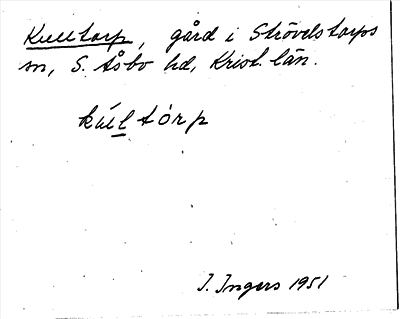 Kulltorp, gård i Strövelstorps
sn, S. Åsbo hd, Krist. län.
kúl tòrp
I. Ingers 1951